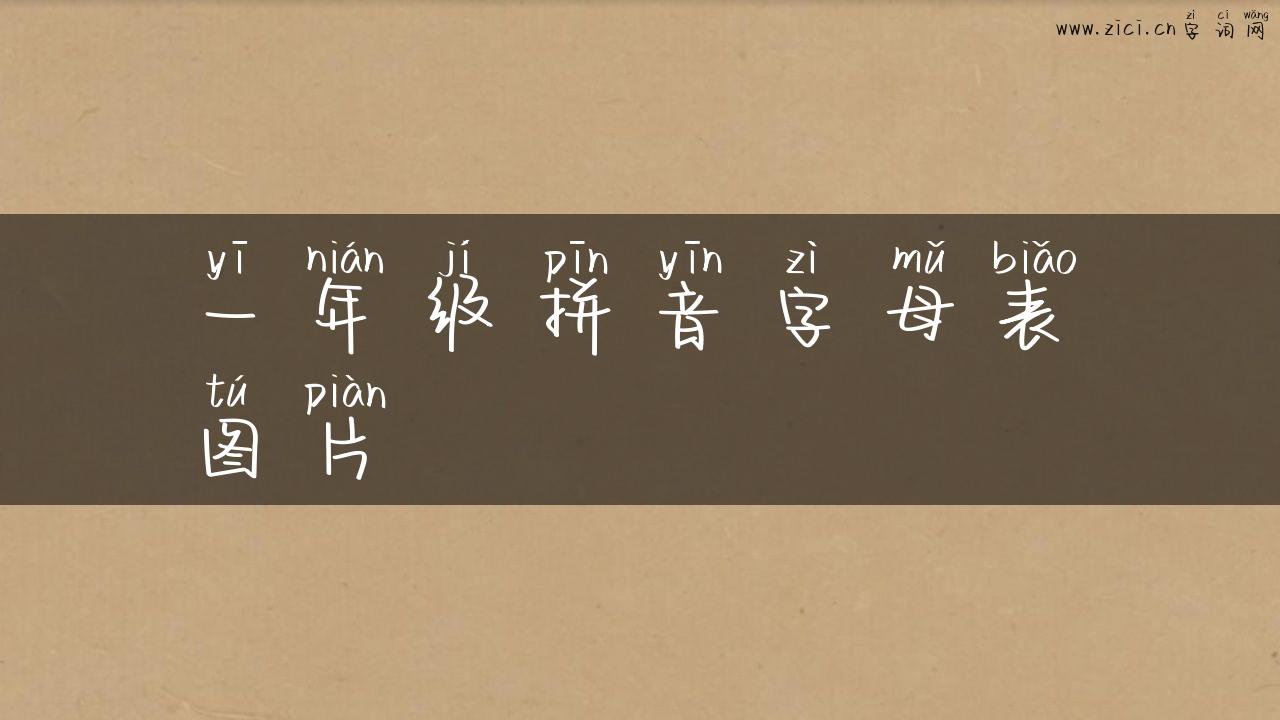 zì cí wǎng
www.zici.cn 字词网
yī nián jí pīn yīn zì mǔ biǎo
一年级拼音字母表
tú piàn
图片